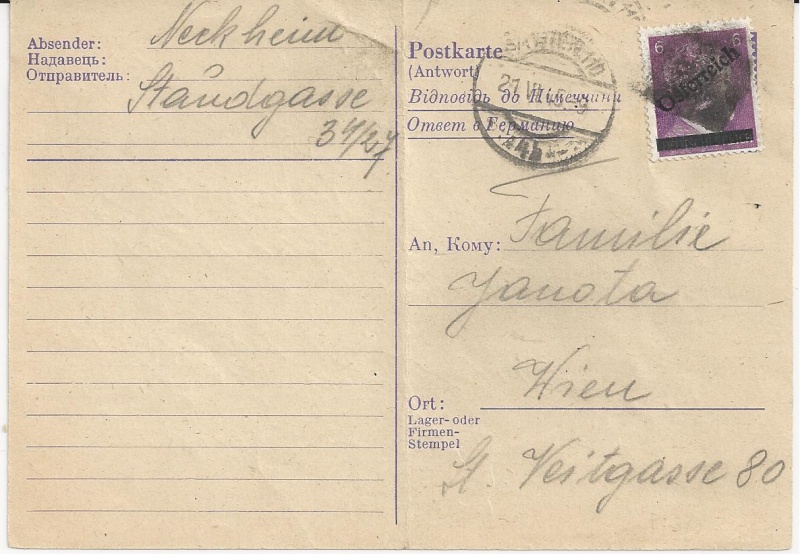 Absender:
Надавець:
Отправитель:
Neckheim
Staudgasse
34/27
Postkarte
(Antwort)
Вiдповiдь до Нiмеччини
Ответ в Германию
21.VII.45
6 6
Österreich
An, Кому: Familie
Janota
Wien
Ort:
Lager- oder
Firmen-
Stempel
St. Veitgasse 80